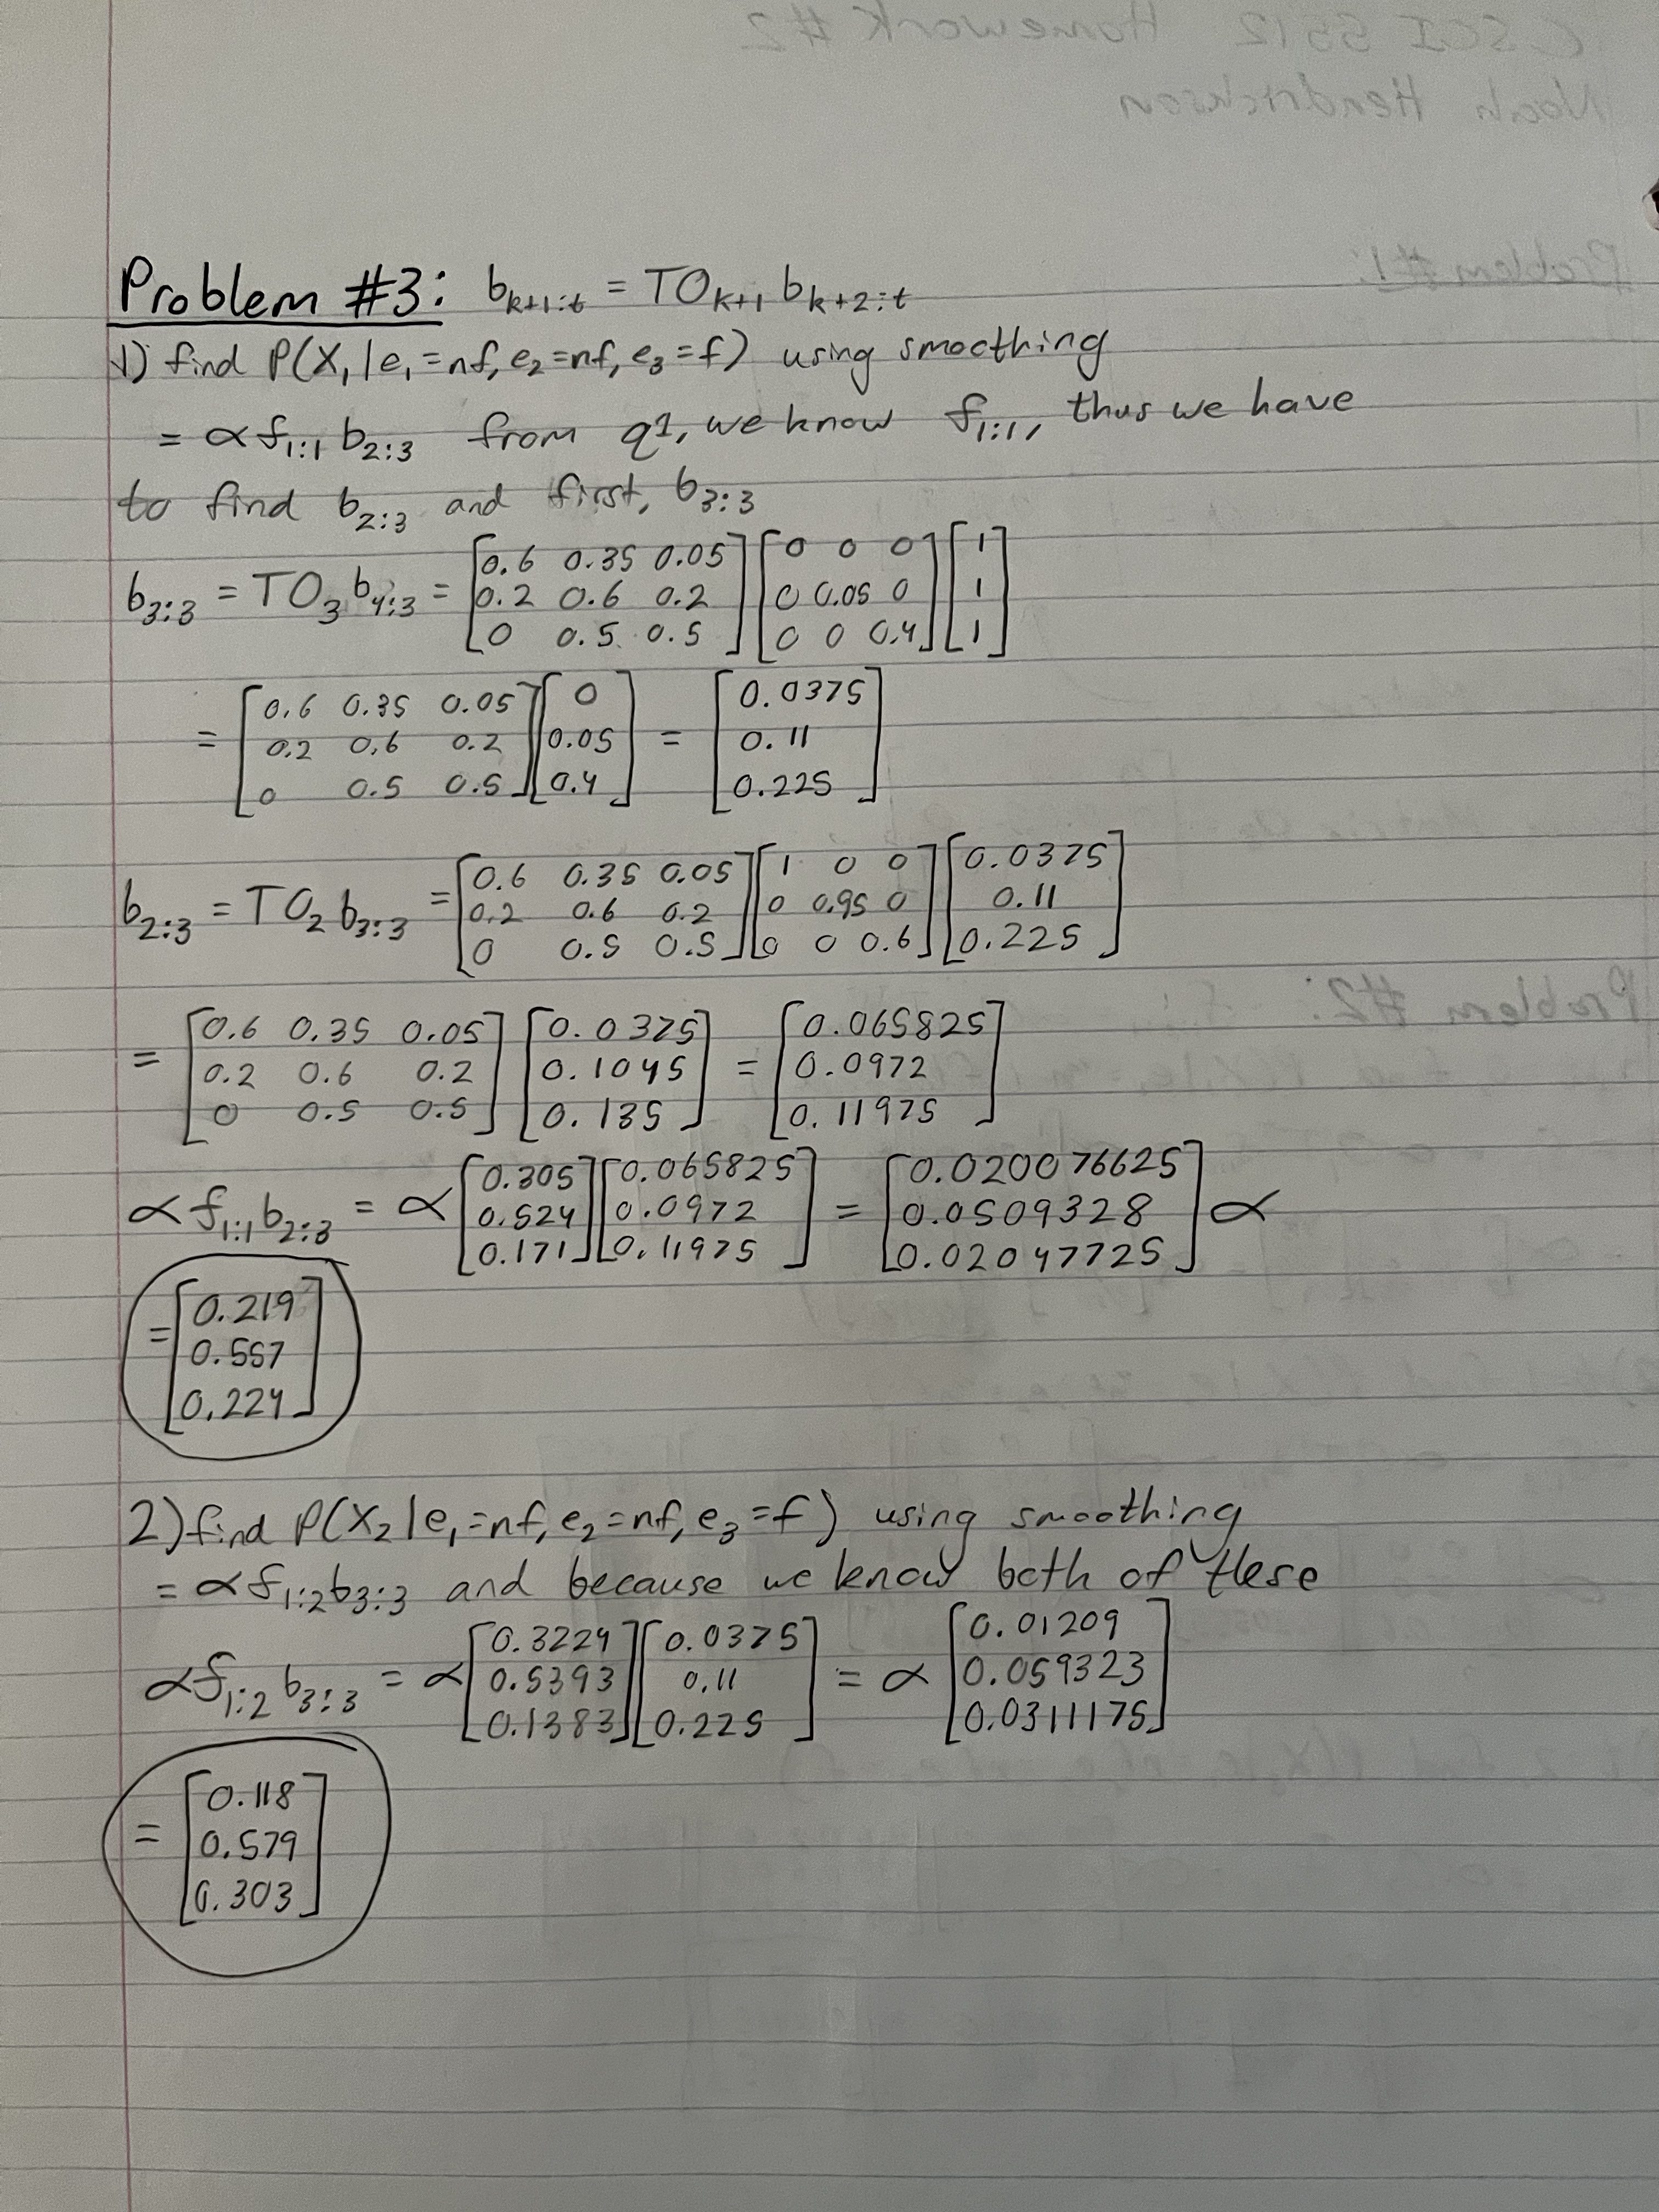 CSCI 5512 Homework #2
Noah Hendrickson
Problem #1:
Problem #3: b_{k+1:t} = TO_{k+1} b_{k+2:t}
1) find P(X₁|e₁=nf, e₂=nf, e₃=f) using smoothing
= α f_{1:1} b_{2:3} from q1, we know f_{1:1}, thus we have
to find b_{2:3} and first, b_{3:3}
b_{3:3} = TO₃ b_{4:3} = [0.6 0.35 0.05; 0.2 0.6 0.2; 0 0.5 0.5] [0 0 0; 0 0.05 0; 0 0 0.4] [1; 1; 1]
= [0.6 0.35 0.05; 0.2 0.6 0.2; 0 0.5 0.5] [0; 0.05; 0.4] = [0.0375; 0.11; 0.225]
b_{2:3} = TO₂ b_{3:3} = [0.6 0.35 0.05; 0.2 0.6 0.2; 0 0.5 0.5] [1 0 0; 0 0.95 0; 0 0 0.6] [0.0375; 0.11; 0.225]
Problem #2:
= [0.6 0.35 0.05; 0.2 0.6 0.2; 0 0.5 0.5] [0.0375; 0.1045; 0.135] = [0.065825; 0.0972; 0.11975]
α f_{1:1} b_{2:3} = α [0.305; 0.524; 0.171] [0.065825; 0.0972; 0.11975] = [0.020076625; 0.0509328; 0.02047725] α
= [0.219; 0.557; 0.224]
2) find P(X₂|e₁=nf, e₂=nf, e₃=f) using smoothing
= α f_{1:2} b_{3:3} and because we know both of these
α f_{1:2} b_{3:3} = α [0.3224; 0.5393; 0.1383] [0.0375; 0.11; 0.225] = α [0.01209; 0.059323; 0.0311175]
= [0.118; 0.579; 0.303]